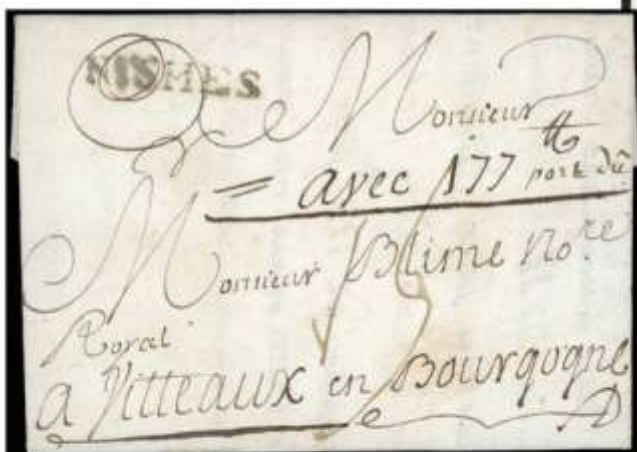 NISMES
Monsieur
= avec 177 ₶ port dû
Monsieur Blime No.re
Royal
a Vitteaux en Bourgogne